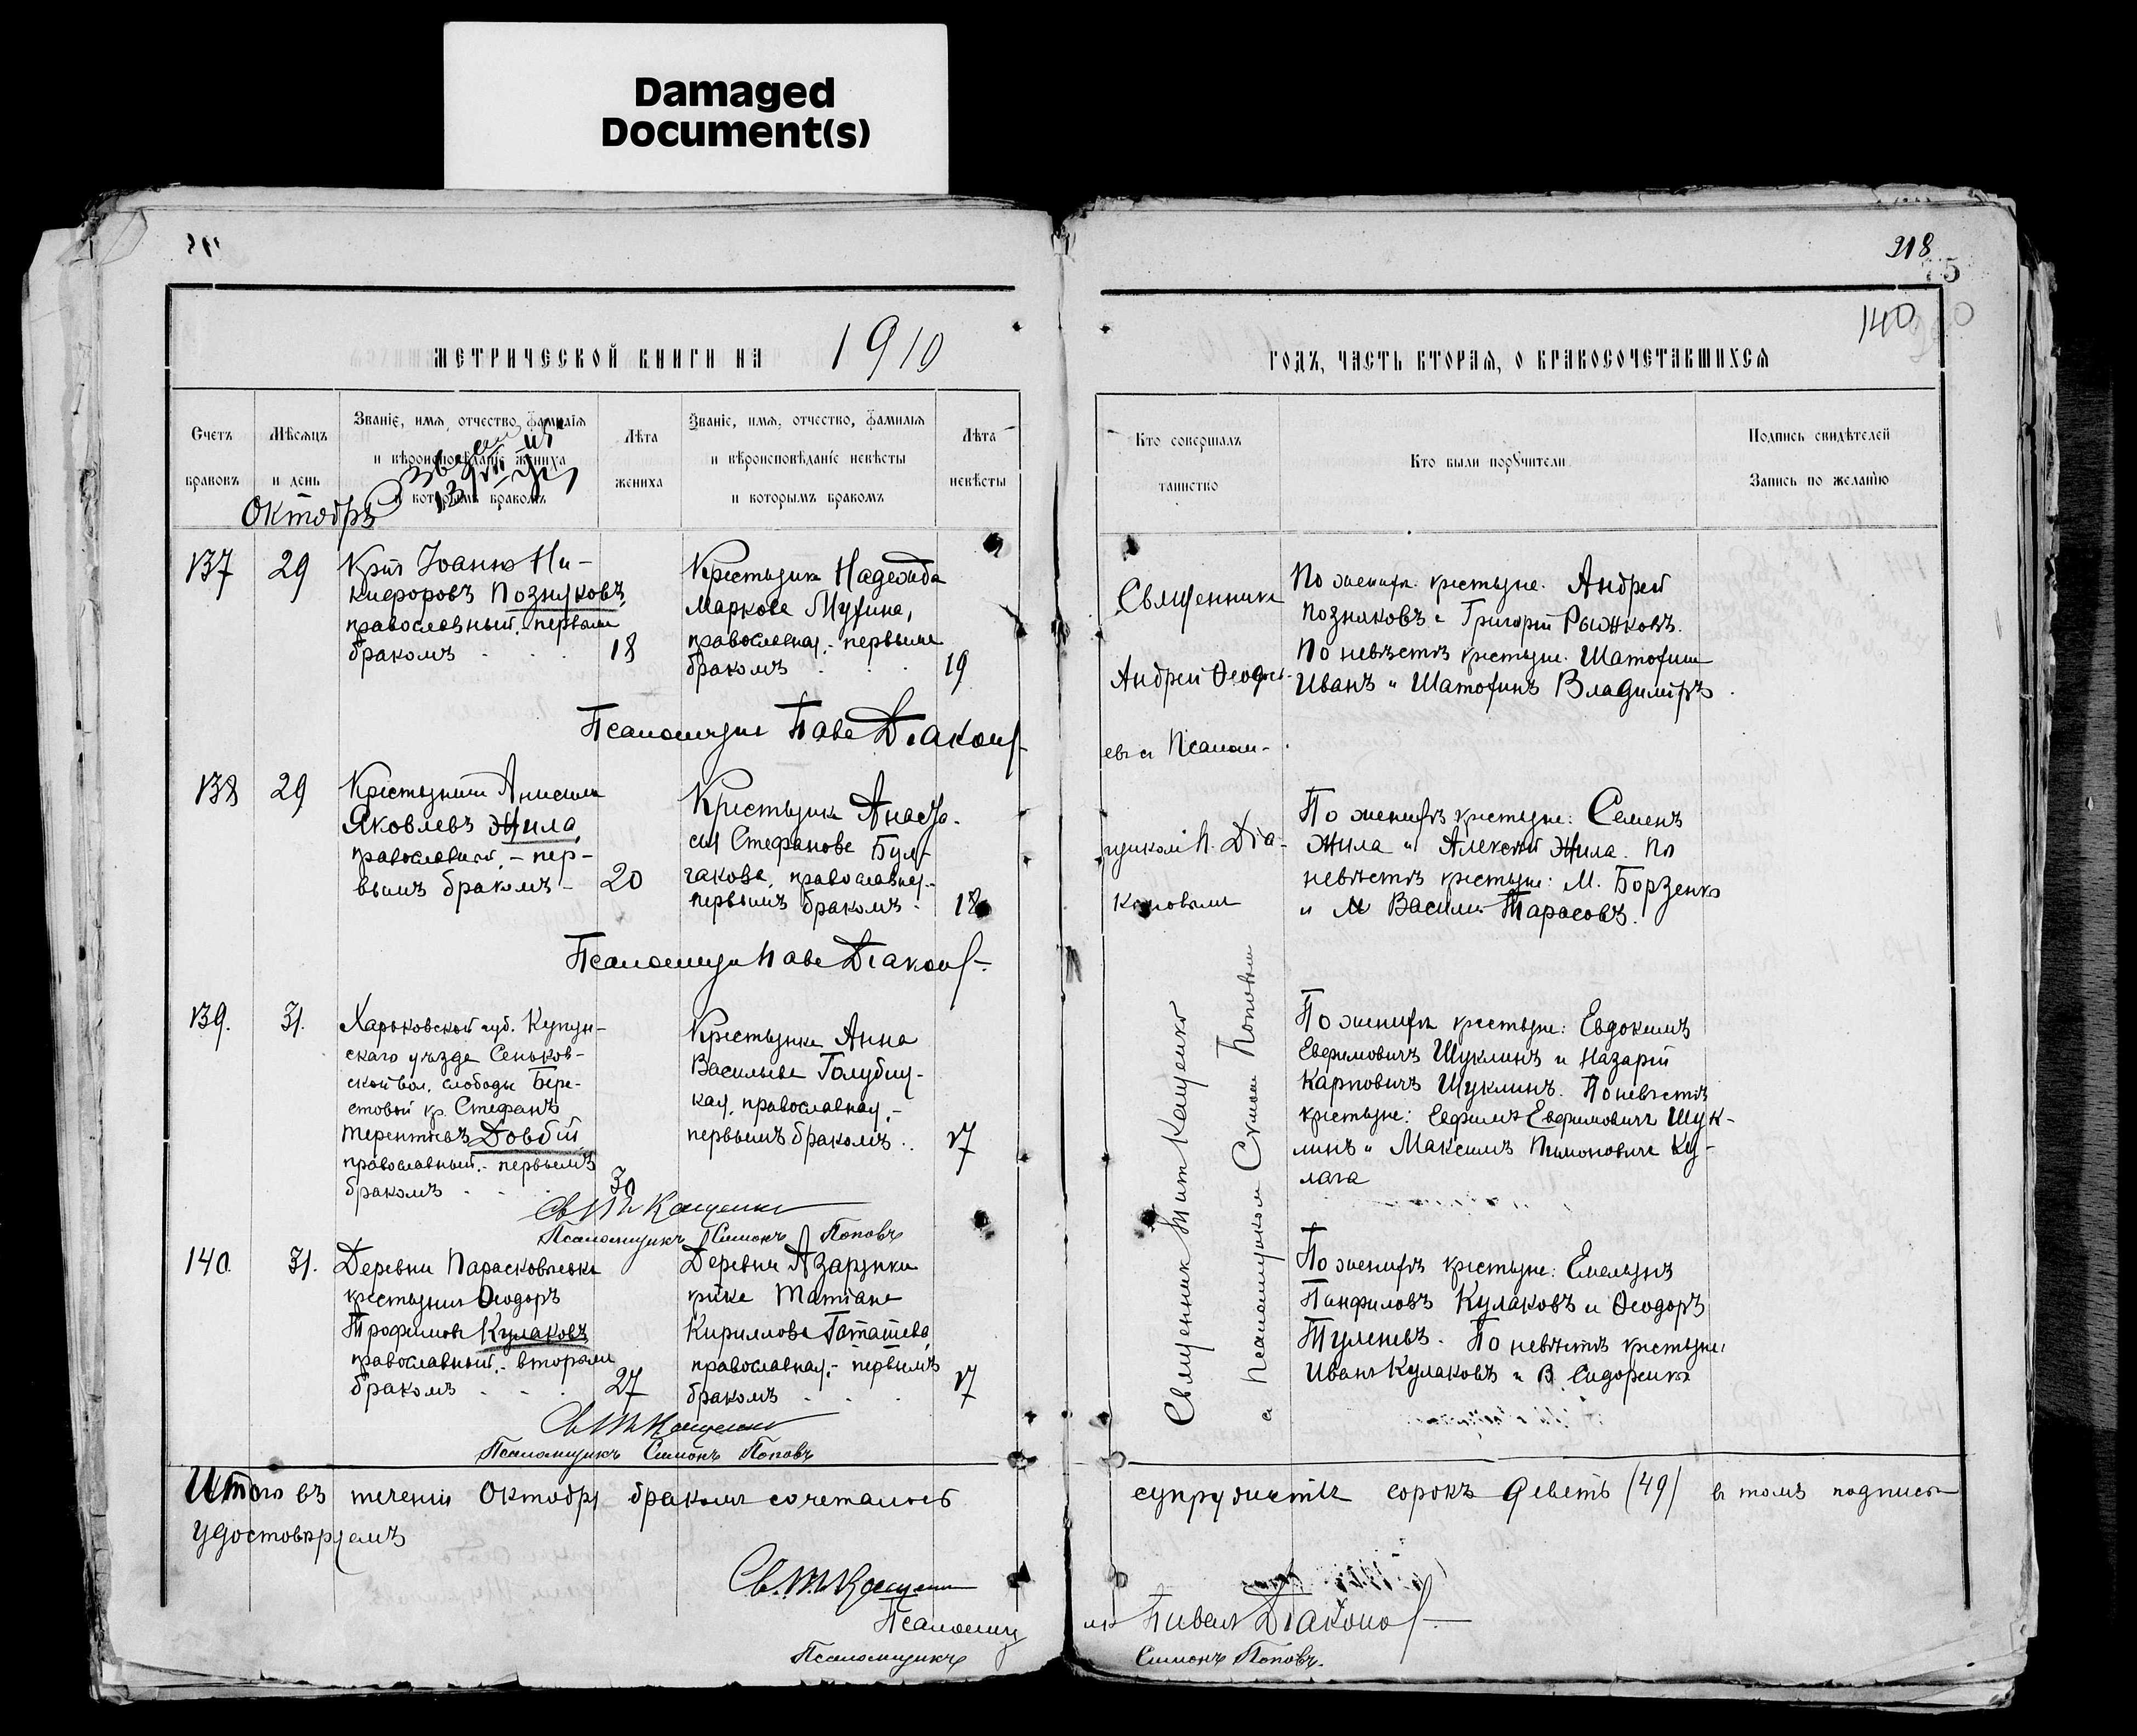 Damaged
Document(s)
218
5
140
МЕТРИЧЕСКОЙ КНИГИ НА 1910
ГОДЪ, ЧАСТЬ ВТОРАЯ, О БРАКОСОЧЕТАВШИХСЯ
Счетъ браковъ
Мѣсяцъ и день
Званіе, имя, отчество, фамилія и вѣроисповѣданіе жениха и которымъ бракомъ
Лѣта жениха
Званіе, имя, отчество, фамилія и вѣроисповѣданіе невѣсты и которымъ бракомъ
Лѣта невѣсты
Кто совершалъ таинство
Кто были поручители
Подпись свидѣтелей
Запись по желанію
Октябрь
137 29
Крнъ Іоаннъ Ни-
кифоровъ Позняковъ,
православный, первымъ
бракомъ 18
Крестьянка Надежда
Маркова
православная, первымъ
бракомъ 19
Священникъ
Андрей Ѳеодось-
евъ и Псалом-
щикомъ П. Діа-
коновымъ
По женихѣ крестьяне: Андрей
Позняковъ и Григорій Рыжковъ.
По невѣстѣ крестьяне:
Иванъ и Владиміръ
Псаломщикъ Паве Діаконовъ
138 29
Крестьянинъ Анисимъ
Яковлевъ Жила,
православный, - пер-
вымъ бракомъ - 20
Крестьянка Анаста-
сія Стефанова Бул-
гакова, православная, -
первымъ бракомъ 18
По женихѣ крестьяне: Семенъ
Жила и Алексѣй Жила. По
невѣстѣ крестьяне: М. Борзенко
и Василій Тарасовъ.
Псаломщикъ Паве Діаконовъ
139. 31.
Харьковской губ. Купян-
скаго уѣзда Сеньков-
ской вол. слободы Бере-
стовой кр. Стефанъ
Терентіевъ Довбій
православный, - первымъ
бракомъ 30
Крестьянка Анна
Васильева Голубиц-
кая, православная, -
первымъ бракомъ 17
Священникъ Тит Кащенко
и Псаломщикомъ Симон Поповым
По женихѣ крестьяне: Евдокимъ
Евфимовичъ Шуклинъ и Назарій
Карповичъ Шуклинъ. По невѣстѣ
крестьяне: Евфимъ Евфимовичъ Шук-
линъ и Максимъ Пимоновичъ Ку-
лага
Св. Т. Кащенко
Псаломщикъ Симонъ Поповъ
140. 31.
Деревни Парасковіевки
крестьянинъ Ѳеодоръ
Трофимовъ Кулаковъ
православный, - вторымъ
бракомъ 27
Деревни
крнка Татіана
Кириллова
православная, - первымъ
бракомъ 17
По женихѣ крестьяне: Емельянъ
Панфиловъ Кулаковъ и Ѳеодоръ
Туленевъ. По невѣстѣ крестьяне:
Иванъ Кулаковъ и В. Сидоренко
Св. Т. Кащенко
Псаломщикъ Симонъ Поповъ
Итого въ теченіи Октября бракомъ сочеталось супружествъ сорокъ девять (49) въ томъ подписью
удостовѣряемъ
Св. Т. Кащенко
Псаломщикъ Павелъ Діаконовъ
Псаломщикъ Симонъ Поповъ.